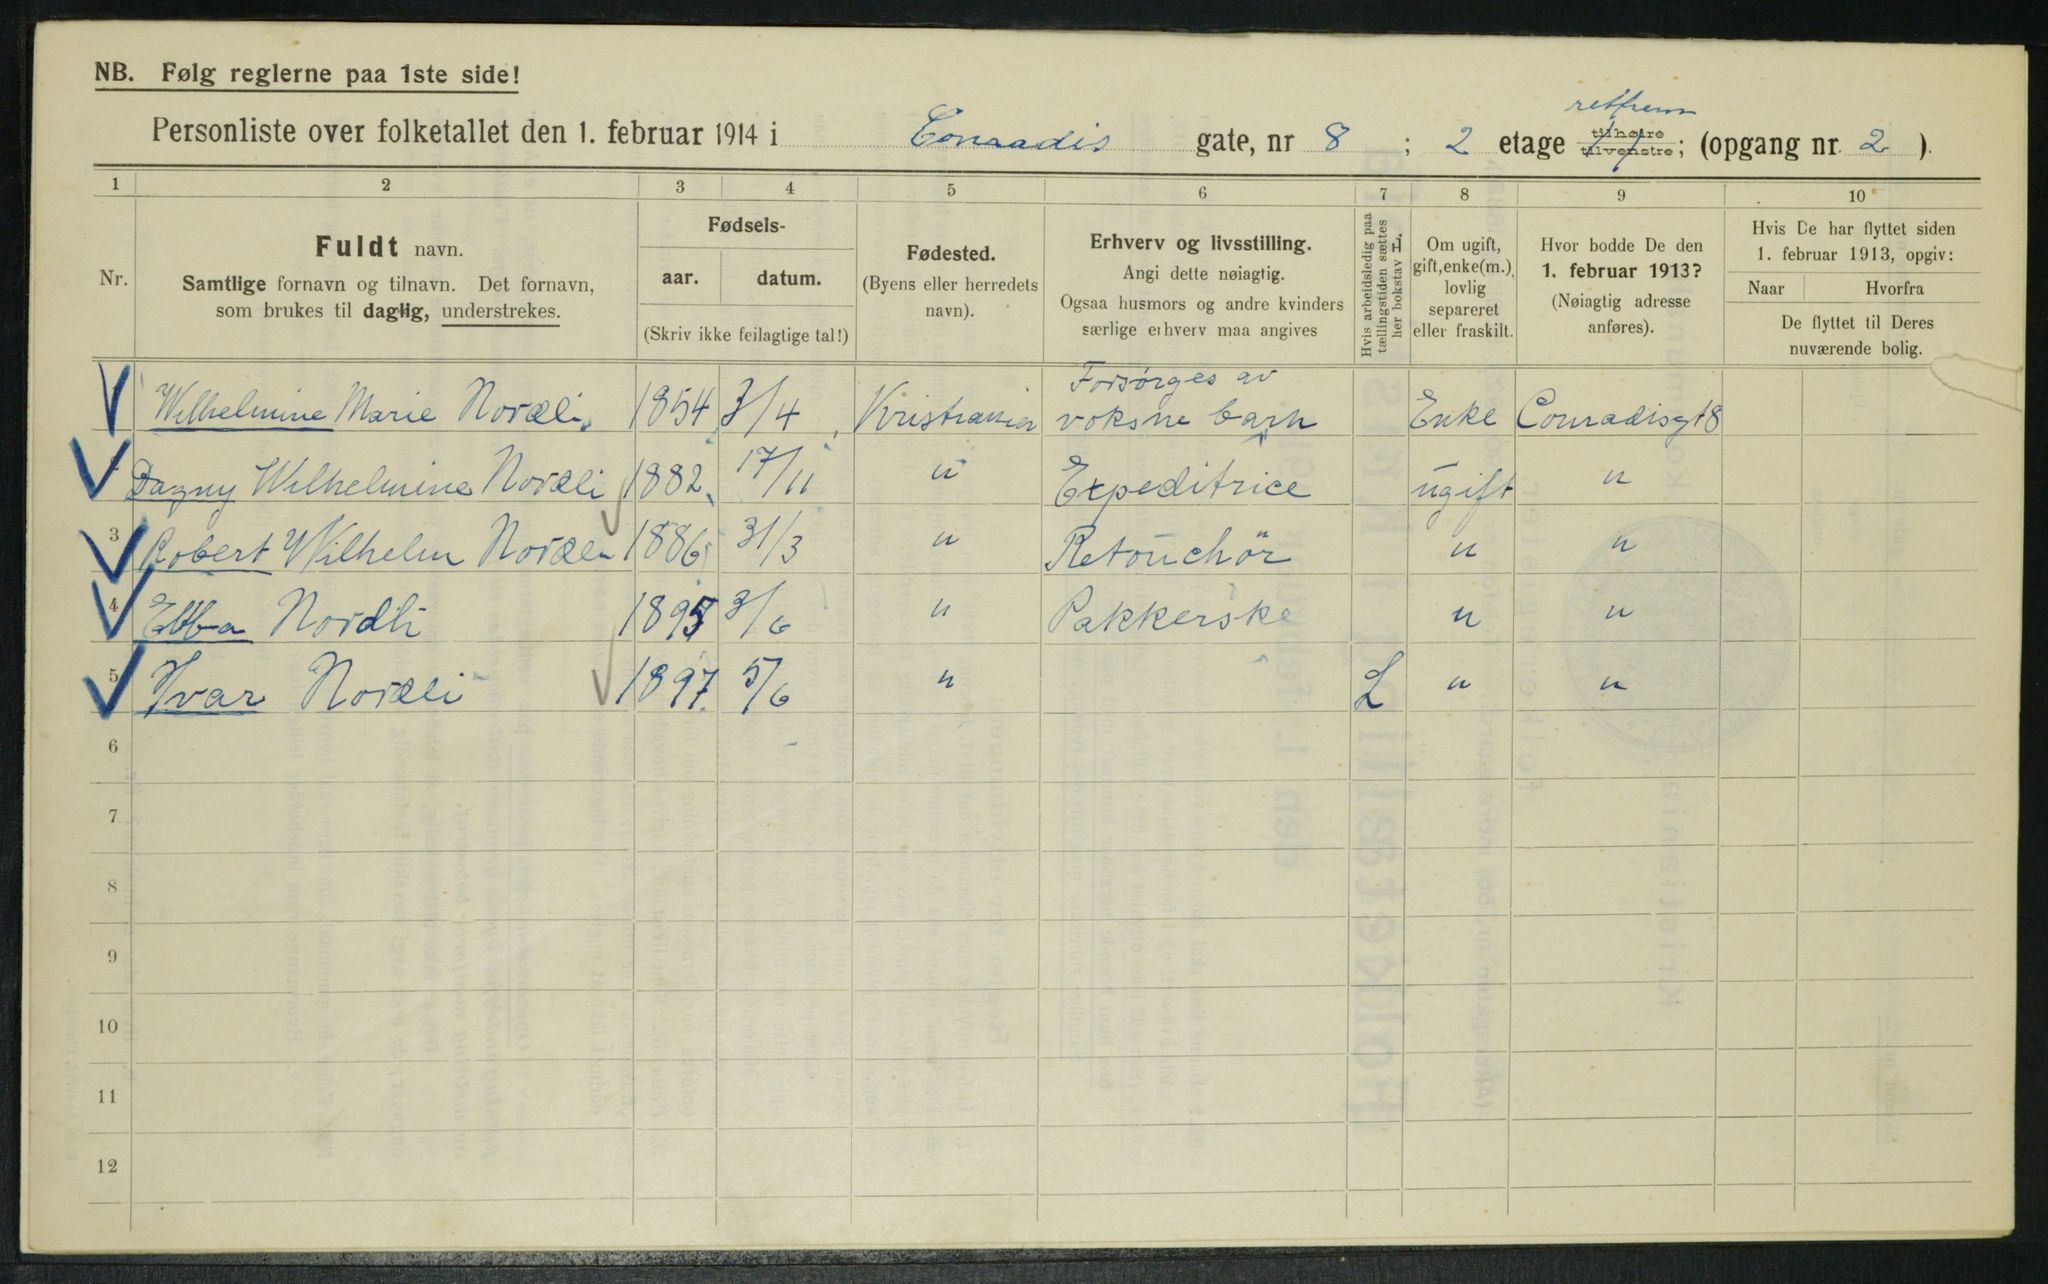 NB. Følg reglerne paa 1ste side!
retfrem
Personliste over folketallet den 1. februar 1914 i Conradis gate, nr 8 ; 2 etage tilhøire tilvenstre; (opgang nr. 2 ).
1 2 3 4 5 6 7 8 9 10
Nr.
Fuldt navn.
Samtlige fornavn og tilnavn. Det fornavn,
som brukes til daglig, understrekes.
Fødsels-
aar. datum.
(Skriv ikke feilagtige tal!)
Fødested.
(Byens eller herredets
navn).
Erhverv og livsstilling.
Angi dette nøiagtig.
Ogsaa husmors og andre kvinders
særlige erhverv maa angives
Hvis arbeidsledig paa
tællingstiden sættes
her bokstav L.
Om ugift,
gift, enke(m.),
lovlig
separeret
eller fraskilt.
Hvor bodde De den
1. februar 1913?
(Nøiagtig adresse
anføres).
Hvis De har flyttet siden
1. februar 1913, opgiv:
Naar Hvorfra
De flyttet til Deres
nuværende bolig.
Forsørges av
Wilhelmine Marie Nordli 1854 3/4 Kristiania voksne barn Enke Conradisgt 8
Dagny Wilhelmine Nordli 1882 17/11 " Expeditrice ugift "
3 Robert Wilhelm Nordli 1886 31/3 " Retouchör " "
4 Ebba Nordli 1895 3/6 " Pakkerske " "
5 Ivar Nordli 1897. 5/6 " L " "
6
7
8
9
10
11
12